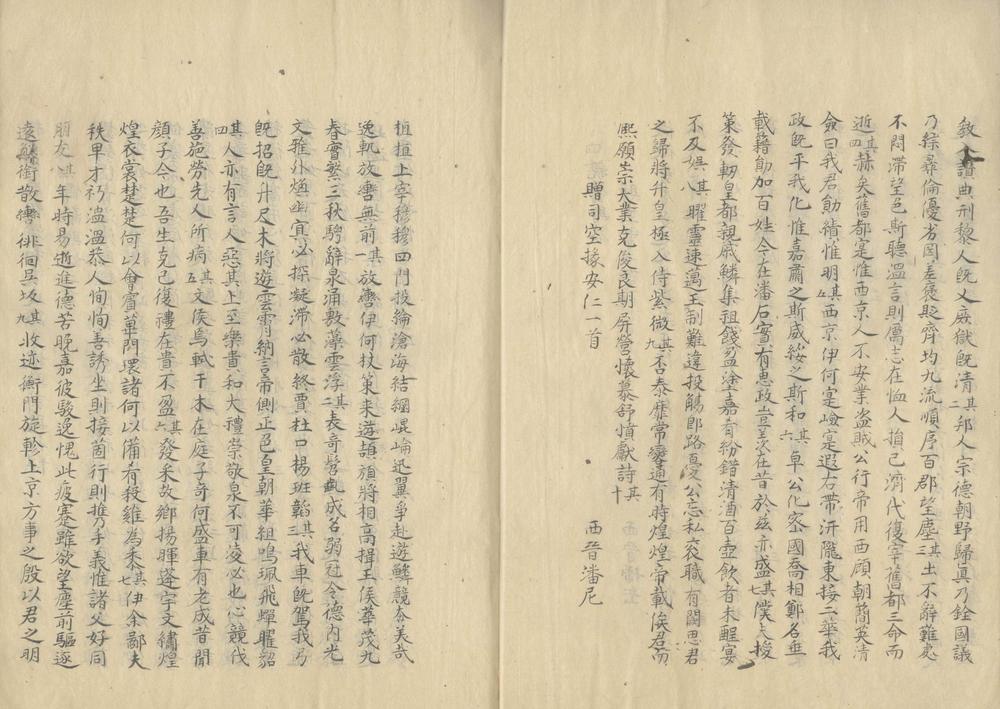 敎人讃典刑黎人旣乂庶獄旣清其二邦人宗德朝野歸眞乃銓國議
乃綜彛倫優劣罔差褒貶齊均九流順序百郡望塵其三土不辭難處
不悶滞望邑斯聽溫言則厲志在恤人損己濟代復宰舊都三命而
逝其四赫矣舊都寔惟西京人不安業盗賊公行帝用西顧朝簡英清
僉曰我君勛績惟明其五西京伊何寔嶮寔遐右帶汧隴東接二華我
政旣平我化惟嘉肅之斯威綏之斯和其六卓公化密國喬相鄭名垂
載籍勛加百姓今在潘石實有惠政豈在昔於兹亦盛其七僕夫授
策發軔皇都親戚鱗集祖餞盈塗嘉肴紛錯清酒百壺飲者未醒宴
不及娛其八曜靈速邁王制難違投觴郎路憂公忘私衮職有闕思君
之歸將升皇極入侍紫微其九否泰靡常廢通有時煌煌帝載俟君而
熙願宗大業克俊良期屏營懷慕舒憤獻詩其十
贈司空掾安仁一首
西晉潘尼
桓桓上宰穆穆四門投綸滄海結網崐崘迅翼爭赴遊鱗競奔美哉
逸軌放轡無前其一放轡伊何杖策来遊頡頏將相高揖王侯華茂九
春實繁三秋騁辭泉涌敷藻雲浮其二表奇髫齓成名弱冠令德内光
文雅外煥幽冥必探凝滞必散終賈杜口楊班韜其三我車旣駕我弓
旣招旣升尺木將遊雲霄納言帝側正色皇朝華組鳴珮飛蟬曜貂
其四人亦有言人惡其上至樂貴和大禮崇敬泉不可凌必也心競伐
善施勞先人所病其五文侯焉軾干木在庭子奇何盛車有老成昔聞
顔子今也吾生克己復禮在貴不盈其六發采故鄉揚暉蓬宇文繡煌
煌衣裳楚楚何以會賓蓽門環諸何以備肴殺雞為黍其七伊余鄙夫
秩卑才朽溫溫恭人恂恂善誘坐則接茵行則攜手義惟諸父好同
朋友其八年時易逝進德苦晚嘉彼駿逸愧此疲蹇雖欲望塵前驅逐
遠纏銜散轡徘徊呉坂其九收迹衡門旋軫上京方事之殷以君之明